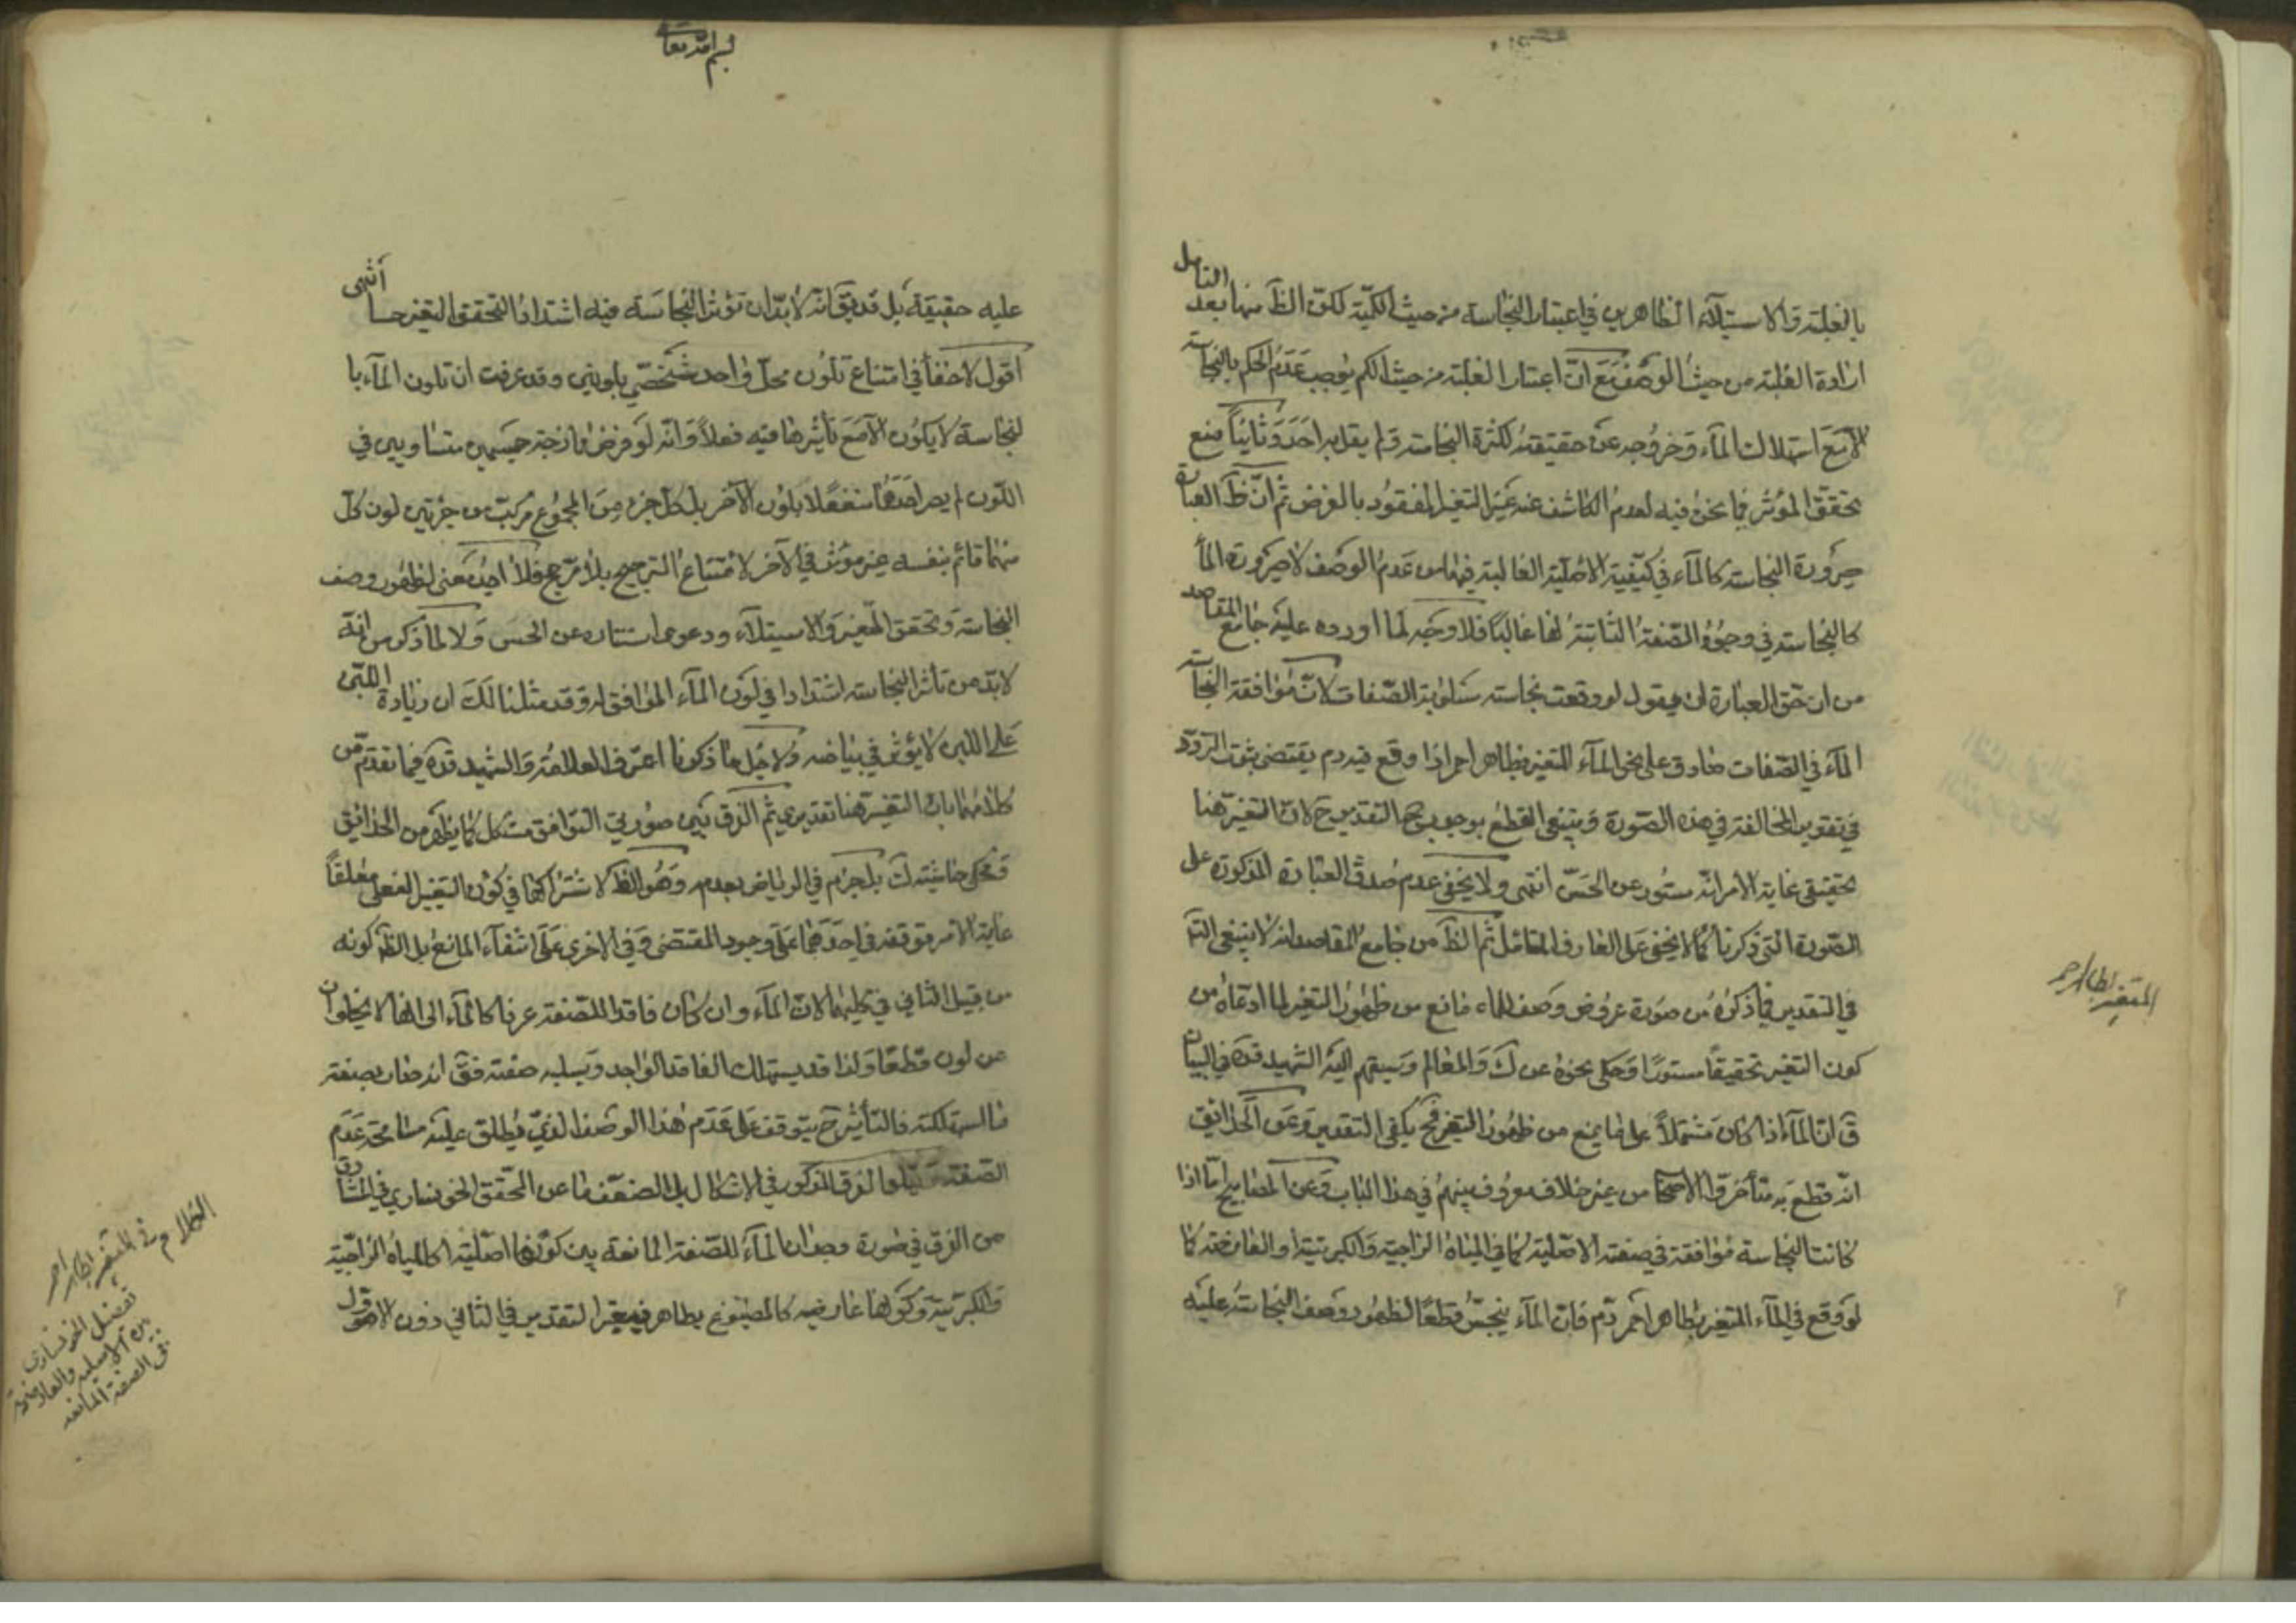 بالغلبة والاستيلاء الظاهرين في اعتبار النجاسة من حيث الكمية لكن الظ منها بعد التامل
ارادة الغلبة من حيث الوصف مع ان اعتبار الغلبة من حيث الكم يوجب عدم الحكم بالنجاسة
الا مع استهلاك الماء وخروجه عن حقيقته لكثرة النجاسة ولم يقل به احد وثانيا منع
تحقق المؤثر فيما نحن فيه لعدم الكاشف عنه غير التغير المفقود بالفرض ثم ان ظ العبارة
صيرورة النجاسة كالماء في كيفيته الاصلية الغالبة فيها من عدم الوصف لا صيرورة الماء
كالنجاسة في وجود الصفة الثابتة لها غالبا فلا وجه لما اورده عليه جامع المقاصد
من ان حق العبارة ان يقول لو وقعت نجاسة مسلوبة الصفات لان موافقة النجاسة
الماء في الصفات صادق على نحو الماء المتغير بطاهر احمر اذا وقع فيه دم يقتضي ثبوت التردد
في تقدير المخالفة في هذه الصورة وينبغي القطع بوجوب التقدير ح لان التغير هنا
تحقيقي غاية الامر انه مستور عن الحس انتهى ولا يخفى عدم صدق العبارة المذكورة على
الصورة التي ذكرنا كما لا يخفى على العارف المتامل ثم الظ من جامع المقاصد انه لا ينبغي
في التقدير فيما ذكره من صورة عروض وصف للماء مانع من ظهور التغير لما ادعاه من
كون التغير تحقيقا مستورا وحكى نحوه عن ك والمعالم وسبقهم اليه الشهيد قده في البيان
ق ان الماء اذا كان مشتملا على ما يمنع من ظهور التغير فح يكفي التقدير وعن الحدائق
انه قطع به متأخروا الاصحاب من غير خلاف معروف بينهم في هذا الباب وعن المصابيح اما اذا
كانت النجاسة موافقة في صفته الاصلية كما في المياه الزاجية والكبريتية او العارضة كما
لو وقع في الماء المتغير بطاهر احمر دم فان الماء ينجس قطعا لظهور وصف النجاسة عليه
المتغير بطاهر احمر
بسم الله تعالى
عليه حقيقة بل قد يق انه لابد ان تؤثر النجاسة فيه اشتدادا لتحقق التغير حسا انتهى
اقول لا خفاء في امتناع تلون محل واحد شخصي بلونين وقد عرفت ان تلون الماء با
لنجاسة لا يكون الا مع تأثيرها فيه فعلا وانه لو فرض ممازجة جسمين متساويين في
اللون لم يصر احدهما منفعلا بلون الآخر بل كل جزء من المجموع مركب من جزئين لون كل
منهما قائم بنفسه غير مؤثر في الآخر لامتناع الترجيح بلا مرجح فلا اجد معنى لظهور وصف
النجاسة وتحقق التغير والاستيلاء ودعوى استتاره عن الحس ولا لما ذكر من انه
لابد من تأثر النجاسة اشتدادا في لون الماء الموافق له وقد مثلنا لك ان زيادة اللبن
على اللبن لا يؤثر في بياضه ولاجل ما ذكرنا اعترف العلامة والشهيد قده فيما تقدم من
كلامهما بان التغير هنا تقديري ثم الفرق بين صورتي التوافق مشكل كما يظهر من الحدائق
وحكي حاشية ك بل جزم في الرياض بعدمه وهو الظ لاشتراكهما في كون التغير الفعلي معلقا
غاية الامر توقفه في احدهما على وجود المقتضي وفي الاخرى على انتفاء المانع بل الظ كونه
من قبيل الثاني في كليهما لان الماء وان كان فاقدا للصفة عرفا كالماء الى انها لا يخلوا
عن لون قطعا ولذا قد يستهلك الفاقد الواجد ويسلبه صفته فق انه صار بصفة
فالمستهلكة فالتأثير ح يتوقف على عدم هذا الوصف الذي يطلق عليه مسامحة عدم
الصفة الفرق المذكور في الاشكال بل الضعف ما عن المحقق الخونساري في المشارق
من الفرق في صورة وجدان الماء للصفة المانعة بين كونها اصلية كالمياه الزاجية
والكبريتية وكونها عارضية كالمصبوغ بطاهر فيعتبر التقدير في الثاني دون الاول
الكلام في المتغير بطاهر احمر
تفصيل الخونساري
بين الاصلية والعارضية
في الصفة المانعة